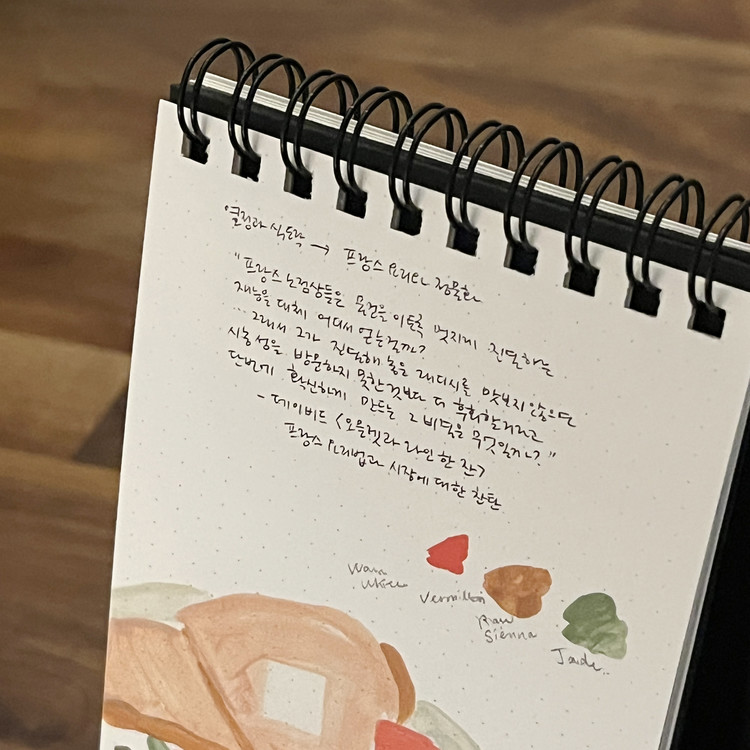 열정과 식도락 → 프랑스 요리와 정물화
"프랑스 노점상들은 물건을 이토록 멋지게 진열하는
재능을 대체 어디서 얻는걸까?
... 그래서 그가 진열해 놓은 래디시를 맛보지 않으면
시농성을 방문하지 못한것보다 더 후회할거라고
단번에 확신하게 만드는 그 비결은 무엇일까?"
- 데이비드 <오믈렛과 와인 한 잔>
프랑스 요리법과 시장에 대한 찬탄
Warm
White
Vermilion
Raw
Sienna
Jade